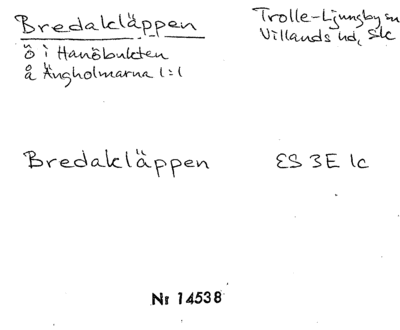 Bredakläppen
Trolle-Ljungby sn
Villands hd, Slc
ö i Hanöbukten
å Ängholmarna 1:1
Bredakläppen
ES 3E 1c
Nr 14538